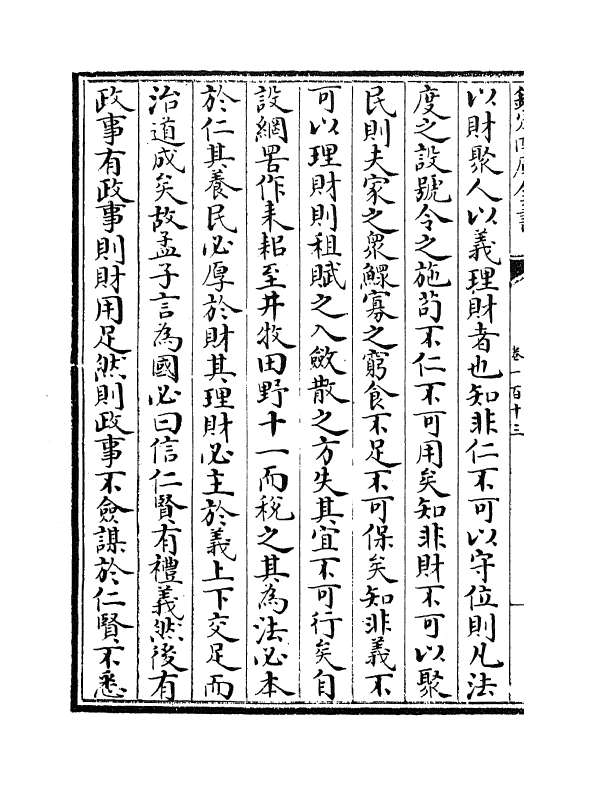 欽定四庫全書
卷一百十三
以財聚人以義理財者也知非仁不可以守位則凡法
度之設號令之施苟不仁不可用矣知非財不可以聚
民則夫家之衆鰥寡之窮食不足不可保矣知非義不
可以理財則租賦之入斂散之方失其宜不可行矣自
設網罟作耒耜至井牧田野十一而稅之其為法必本
於仁其養民必厚於財其理財必主於義上下交足而
治道成矣故孟子言為國必曰信仁賢有禮義然後有
政事有政事則財用足然則政事不僉謀於仁賢不悉